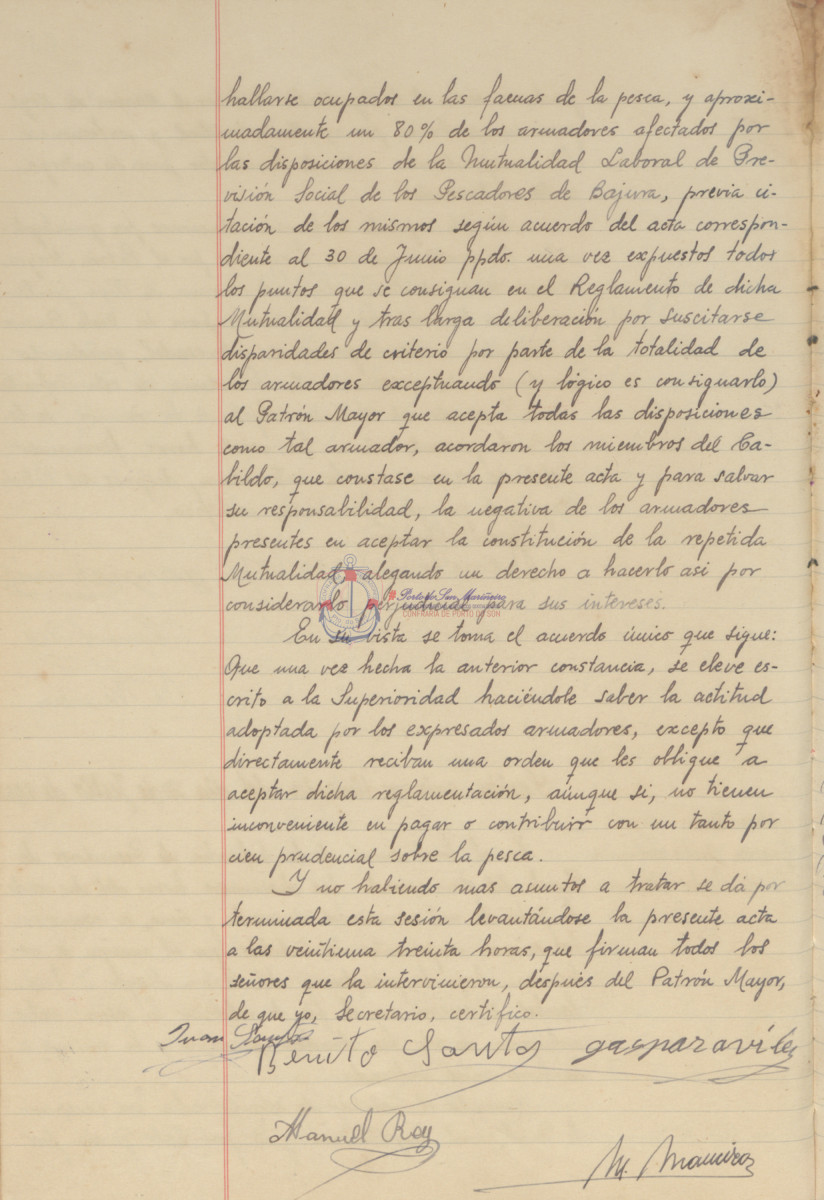 hallarse ocupados en las faenas de la pesca, y aproxi-
madamente un 80% de los armadores afectados por
las disposiciones de la Mutualidad Laboral de Pre-
visión Social de los Pescadores de Bajura, previa ci-
tación de los mismos según acuerdo del acta correspon-
diente al 30 de Junio ppdo. una vez expuestos todos
los puntos que se consignan en el Reglamento de dicha
Mutualidad y tras larga deliberación por suscitarse
disparidades de criterio por parte de la totalidad de
los armadores exceptuando (y lógico es consignarlo)
al Patrón Mayor que acepta todas las disposiciones
como tal armador, acordaron los miembros del Ca-
bildo, que constase en la presente acta y para salvar
su responsabilidad, la negativa de los armadores
presentes en aceptar la constitución de la repetida
Mutualidad, alegando un derecho a hacerlo asi por
considerarlo perjudicial para sus intereses.
Porto do Son Mariñeiro
CONFRARÍA DE PORTO DO SON
En su vista se toma el acuerdo único que sigue:
Que una vez hecha la anterior constancia, se eleve es-
crito a la Superioridad haciéndole saber la actitud
adoptada por los expresados armadores, excepto que
directamente reciban una orden que les obligue a
aceptar dicha reglamentación, aúnque si, no tienen
inconveniente en pagar o contribuir con un tanto por
cien prudencial sobre la pesca.
Y no habiendo mas asuntos a tratar se dá por
terminada esta sesión levantándose la presente acta
a las veintiuna treinta horas, que firman todos los
señores que la intervinieron, después del Patrón Mayor,
de que yo, Secretario, certifico.
Juan
Benito Santos gaspar avíles
Manuel Rey
M.